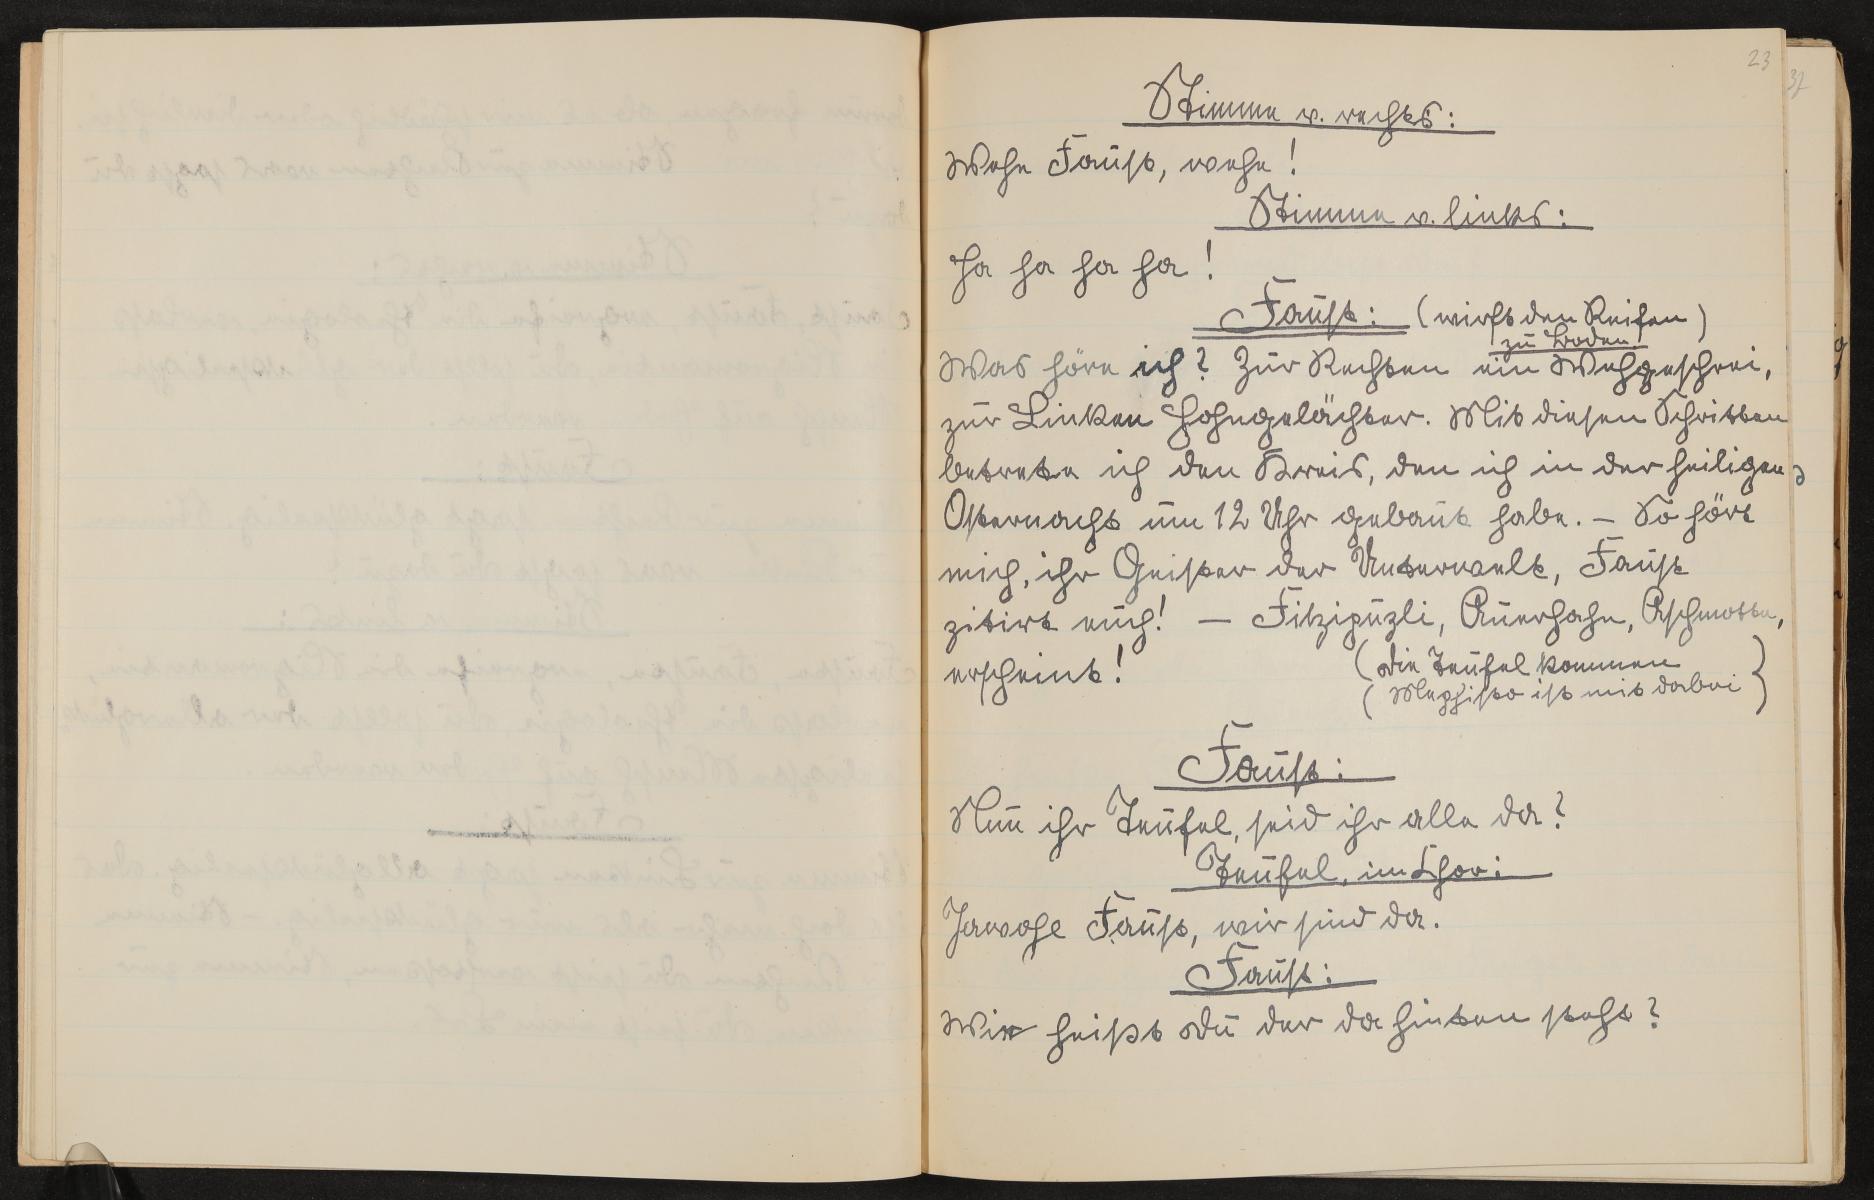 23
37
Stimme v. rechts:
Wehe Faust, wehe!
Stimme v. links:
Ha ha ha ha!
Faust: (wirft den Reifen)
zu Boden!
Was höre ich? Zur Rechten ein Wehgeschrei,
zur Linken Hohngelächter. Mit diesen Schritten
betrete ich den Kreis, den ich in der heiligen
Osternacht um 12 Uhr gebaut habe. – So hört
mich, ihr Geister der Unterwelt, Faust
zitirt euch! – Fitzipuzli, Auerhahn, Aschmotte,
erscheint! (die Teufel kommen
(Mephisto ist mit dabei)
Faust:
Nun ihr Teufel, seid ihr alle da?
Teufel, im Chor:
Jawohl Faust, wir sind da.
Faust:
Wie heißt du der da hinten steht?